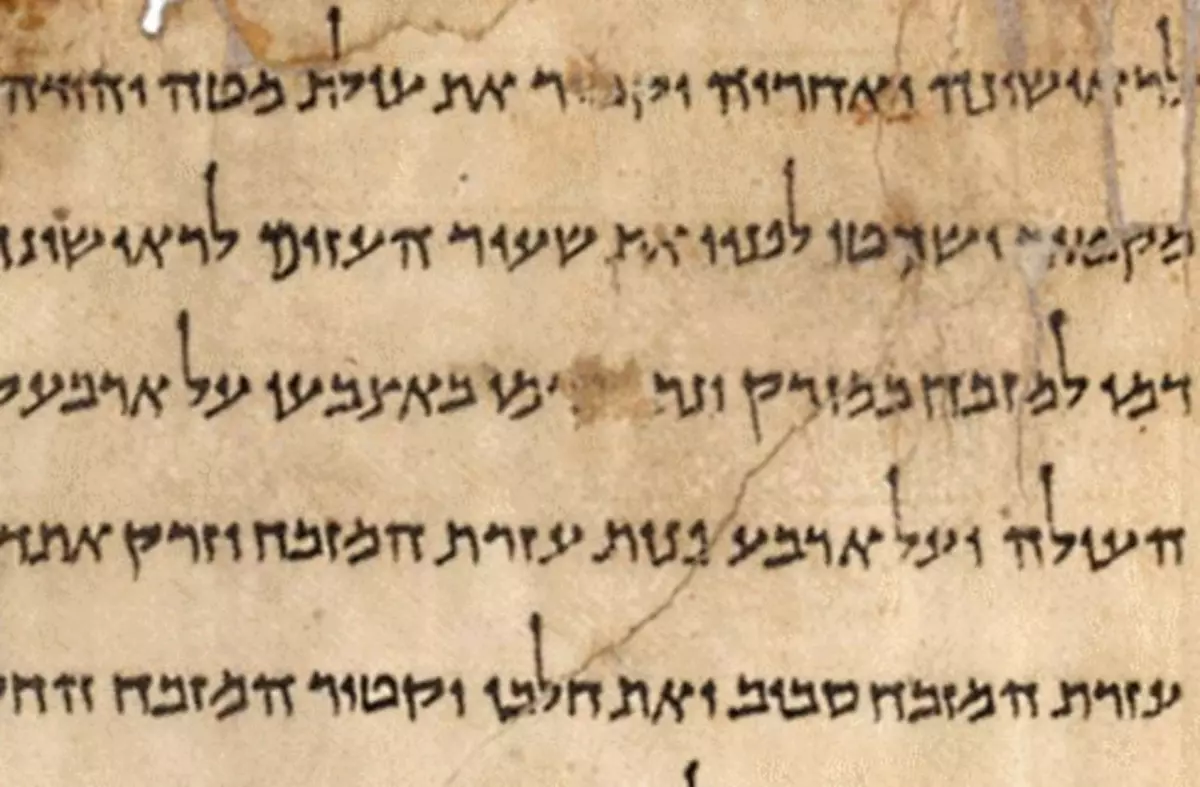 לראישונה ואחריה יקטיר את עולת מטה יהודה
מקטיר ושחטו לפניו את שעיר העזים לראישונ
דמו למזבח במזרק באצבעו על ארבע
העולה ועל ארבע פנות עזרת המזבח וזרק את ד
עזרת המזבח סביב ואת חלבו יקטיר המזבח